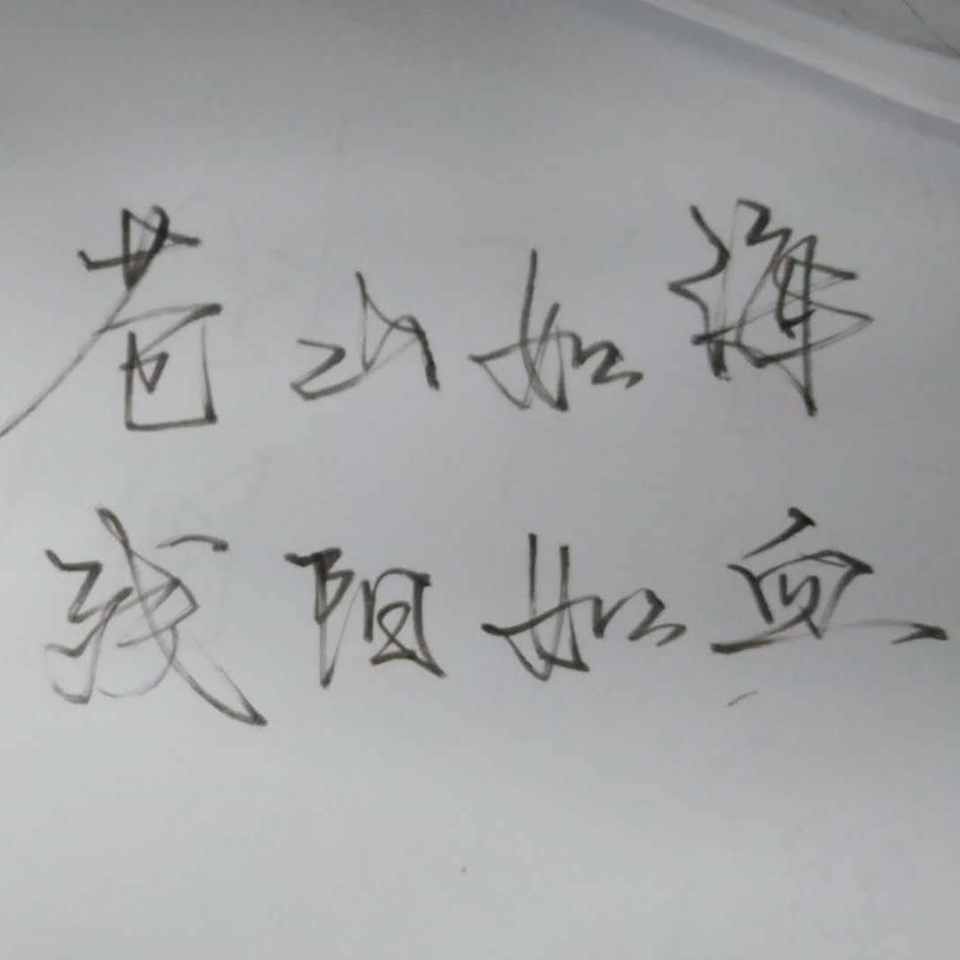 苍山如海
残阳如血